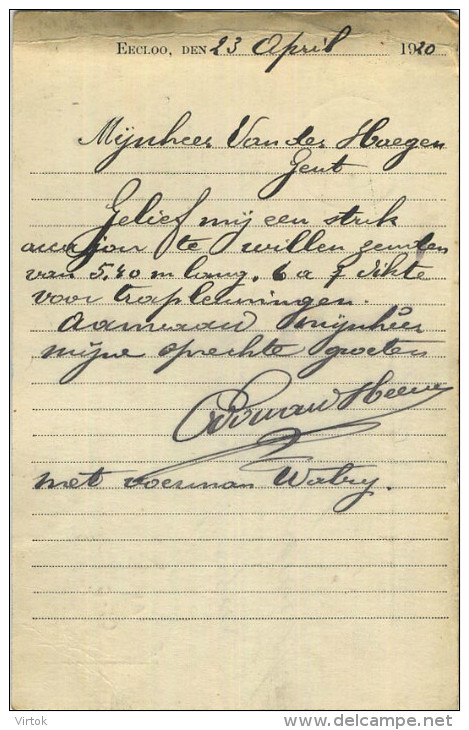 Eecloo, den 23 April 1920
Mijnheer Van der Haegen
Gent
Gelief mij een stuk
te willen zenden
van 5.40 m lang. 6 a 7 dikte
voor trapleuningen.
Aanvaard mijnheer
mijne oprechte groeten
met voerman Watry.
Virtok
delcampe.net